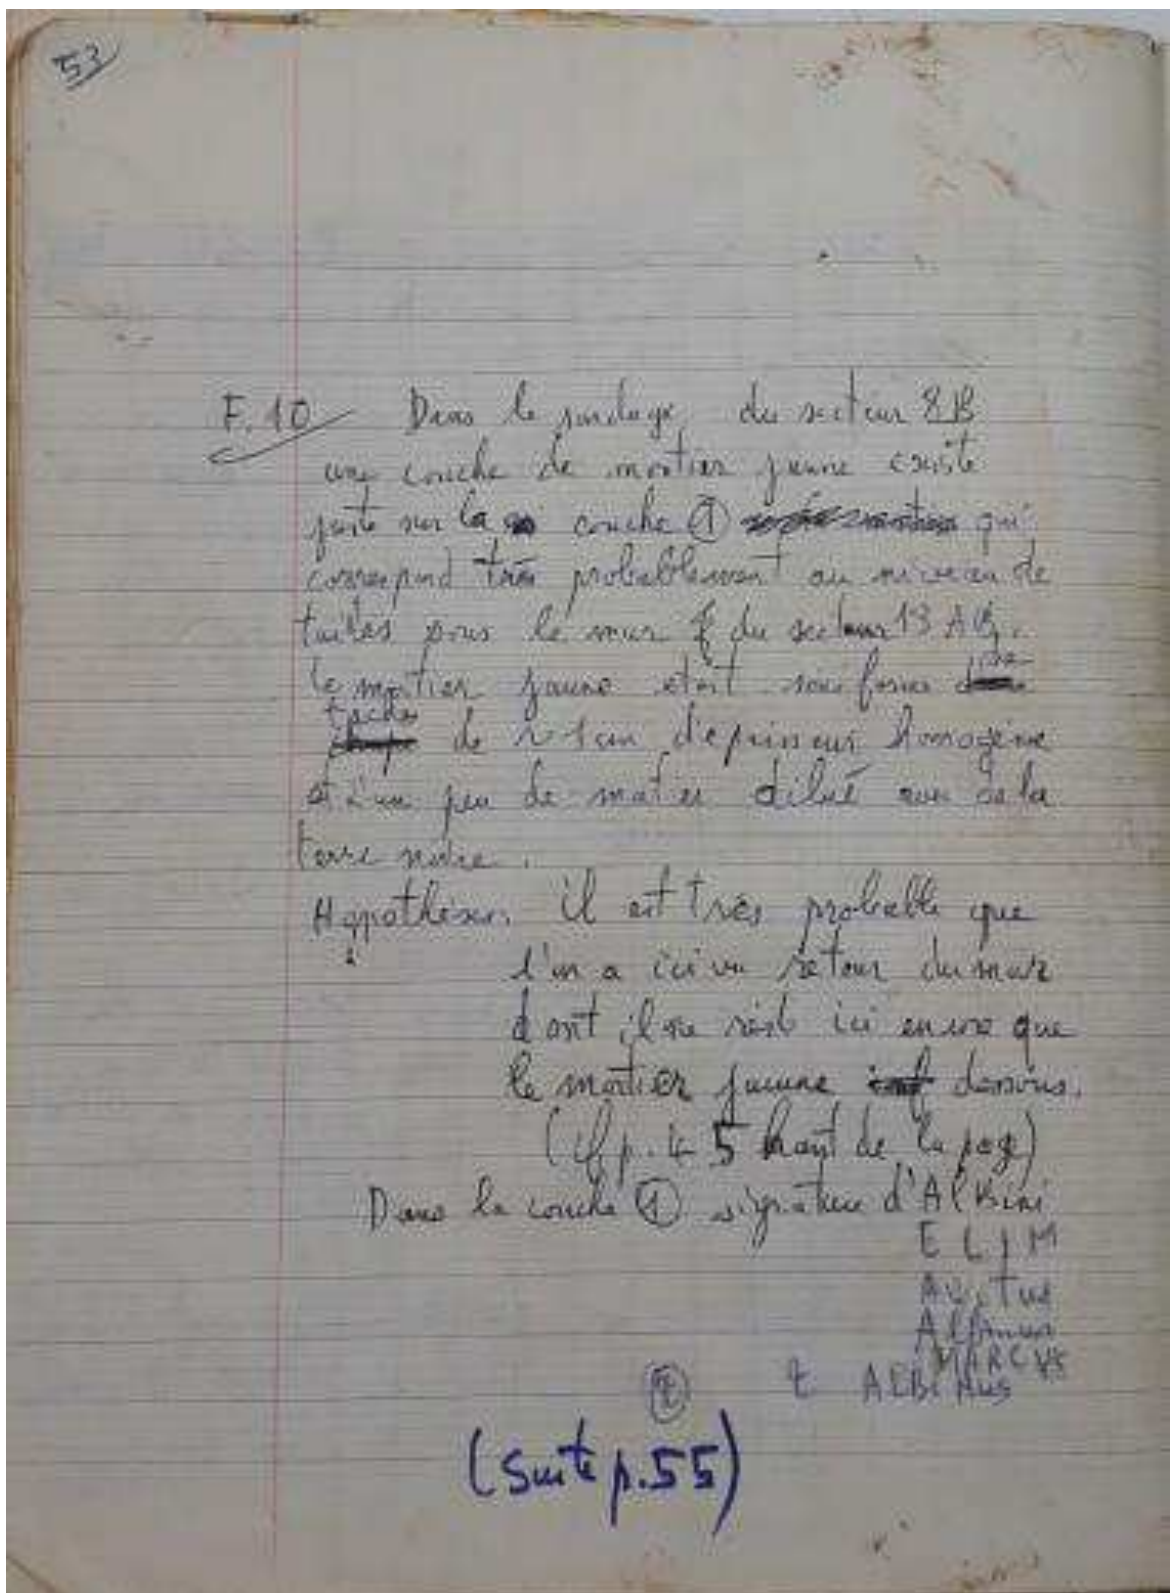 53
F.10 Dans le sondage du secteur 8B
une couche de mortier jaune existe
juste sur la couche ① qui
correspond très probablement au niveau de
tuiles pour le mur du secteur 13 AB.
le mortier jaune était sous forme de
taches de ~ 1 cm d'épaisseur homogène
et d'un peu de mortier dilué avec de la
terre noire.
Hypothèse: il est très probable que
l'on a ici un retour du mur
dont il ne reste ici encore que
le mortier jaune dessous.
(cf p. 45 haut de la page)
Dans la couche ① signature d'Albini
ELIM
Avitus
MARCVS
ALBINUS
(Suite p.55)